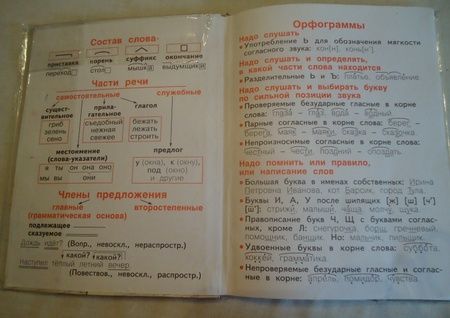 Состав слова
приставка корень суффикс окончание
переход стол мышка выдумщик
Части речи
самостоятельные служебные
существительное
прилагательное
глагол
гриб
зелень
окно
съедобный
нежная
свежее
бежать
лежать
строить
местоимение
(слова-указатели)
я ты он она оно
мы вы они
предлог
у (окна), к (окну),
под (окном)
и другие
Члены предложения
главные второстепенные
(грамматическая основа)
подлежащее
сказуемое
Дождь идёт? (Вопр., невоскл., нераспростр.)
какой? какой?
Наступил тёплый летний вечер.
(Повествов., невоскл., распростр.)
Орфограммы
Надо слушать
Употребление Ь для обозначения мягкости
согласного звука: кон[н], конь[н'].
Надо слушать и определять,
в какой части слова находится
Разделительные Ь и Ъ: платье, объявление
Надо слушать и выбирать букву
по сильной позиции звука
Проверяемые безударные гласные в корне
слова: глаза — глаз, вода — водный
Парные согласные в корне слова: берег,
берега, маяк, маяки, сказка — сказочка.
Непроизносимые согласные в корне слова:
честный — чести, поздний — опоздать.
Надо помнить или правило,
или написание слов
Большая буква в именах собственных: Ирина
Петровна Иванова, кот Барсик, город Тула.
Буквы И, А, У после шипящих [ж] [ш] [ч']
[щ']: стрижи, малыши, чаща, молчу, щука.
Правописание букв Ч, Щ с буквами соглас-
ных, кроме Л: снегурочка, борщ, гречневый,
помощник, банщик. Но: мальчик, пильщик.
Удвоенные буквы в корне слова: суббота,
хоккей, грамматика.
Непроверяемые безударные гласные и соглас-
ные в корне: апрель, помидор, чувства.